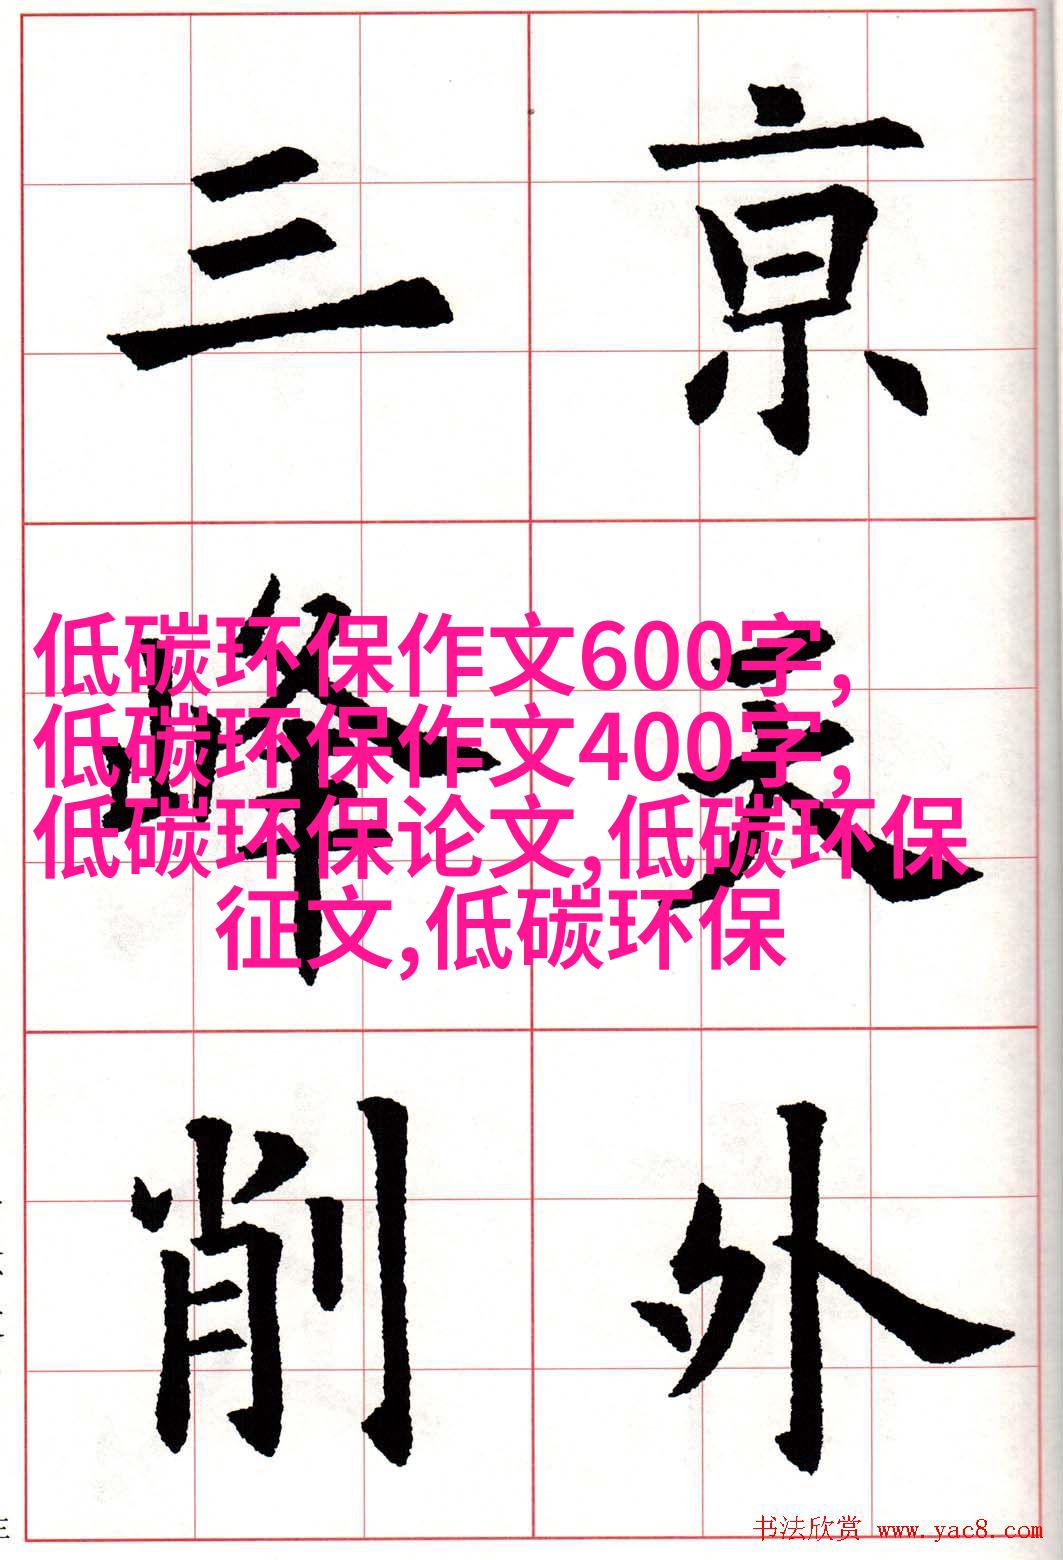 亰天外
三峰削
低碳环保作文600字,
低碳环保作文400字,
低碳环保论文,低碳环保
征文,低碳环保
书法欣赏 www.yac8.com